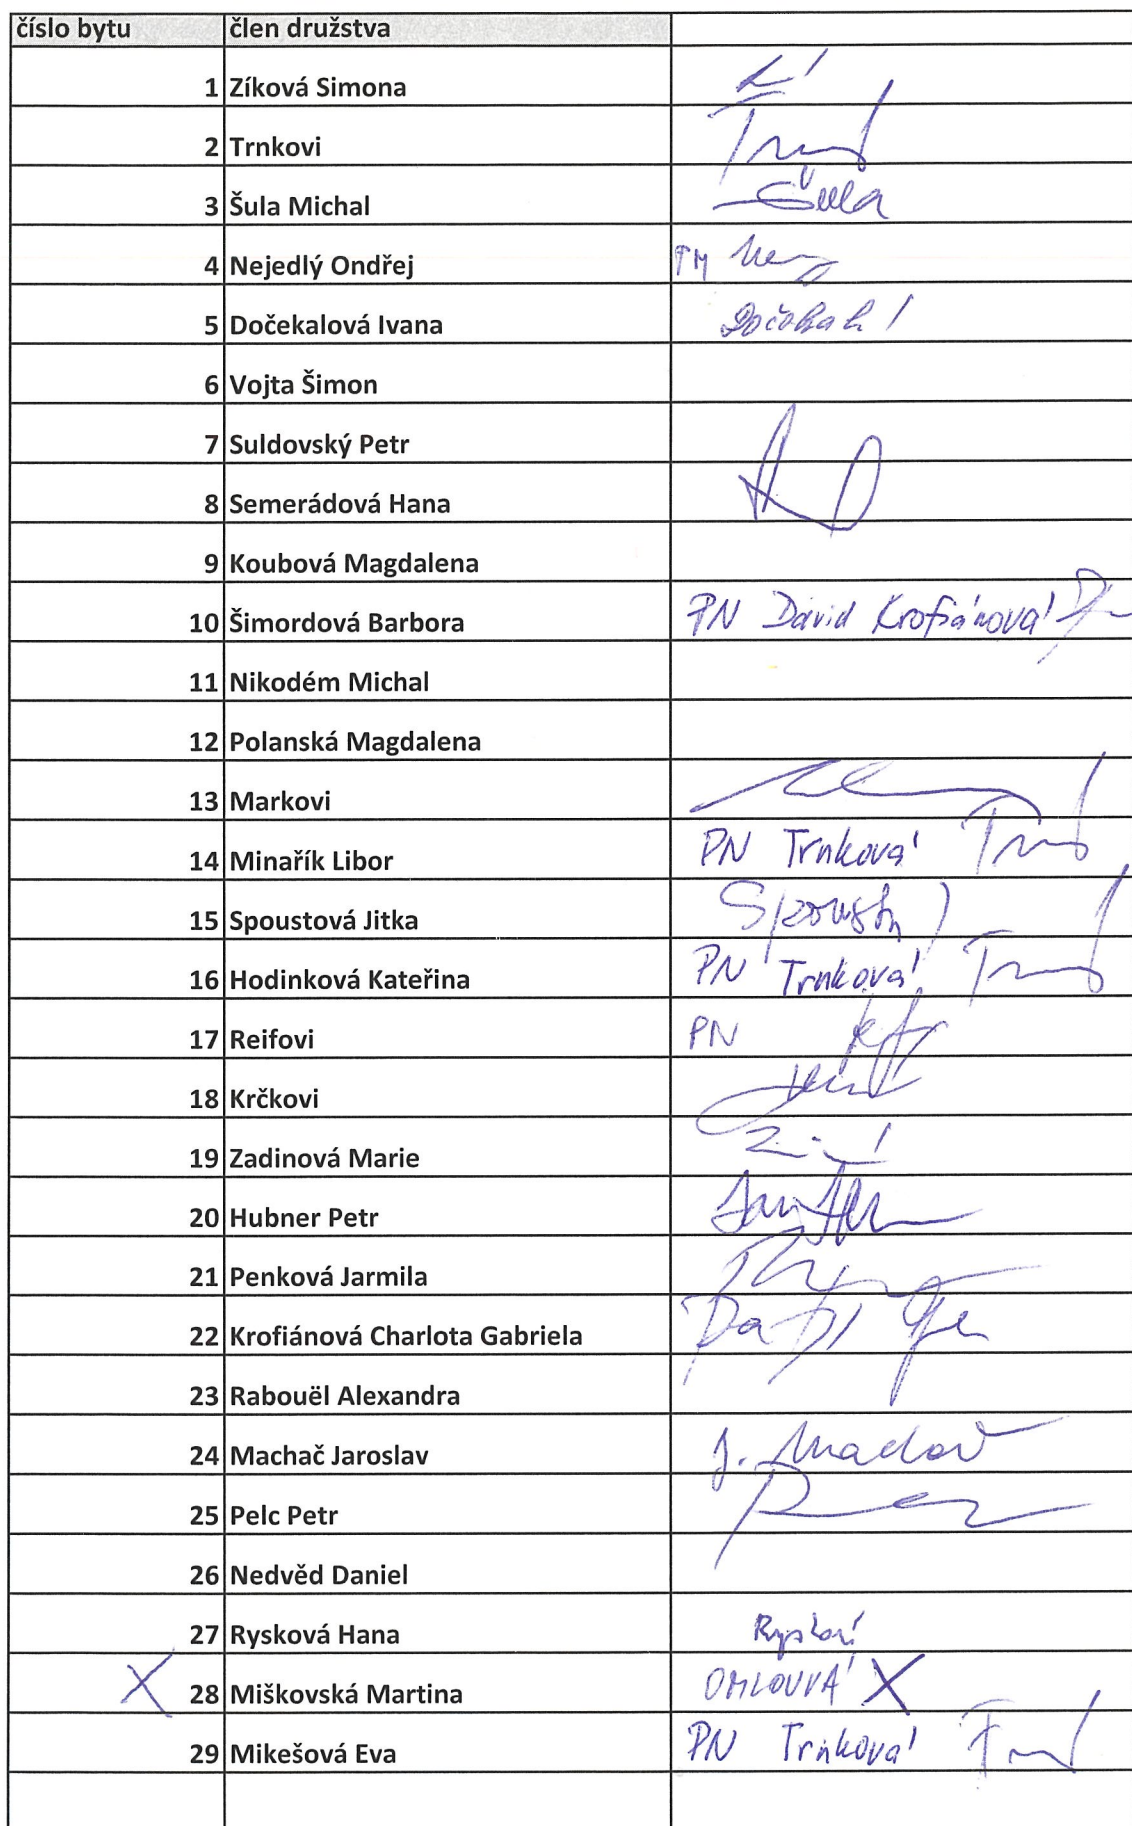 číslo bytu člen družstva
1 Zíková Simona
2 Trnkovi
3 Šula Michal Šula
4 Nejedlý Ondřej
5 Dočekalová Ivana
6 Vojta Šimon
7 Suldovský Petr
8 Semerádová Hana
9 Koubová Magdalena
10 Šimordová Barbora PN David Krofiánová
11 Nikodém Michal
12 Polanská Magdalena
13 Markovi
14 Minařík Libor PN Trnková
15 Spoustová Jitka
16 Hodinková Kateřina PN Trnková
17 Reifovi PN
18 Krčkovi
19 Zadinová Marie
20 Hubner Petr
21 Penková Jarmila
22 Krofiánová Charlota Gabriela
23 Rabouël Alexandra
24 Machač Jaroslav
25 Pelc Petr
26 Nedvěd Daniel
27 Rysková Hana
X 28 Miškovská Martina OMLOUVÁ X
29 Mikešová Eva PN Trnková